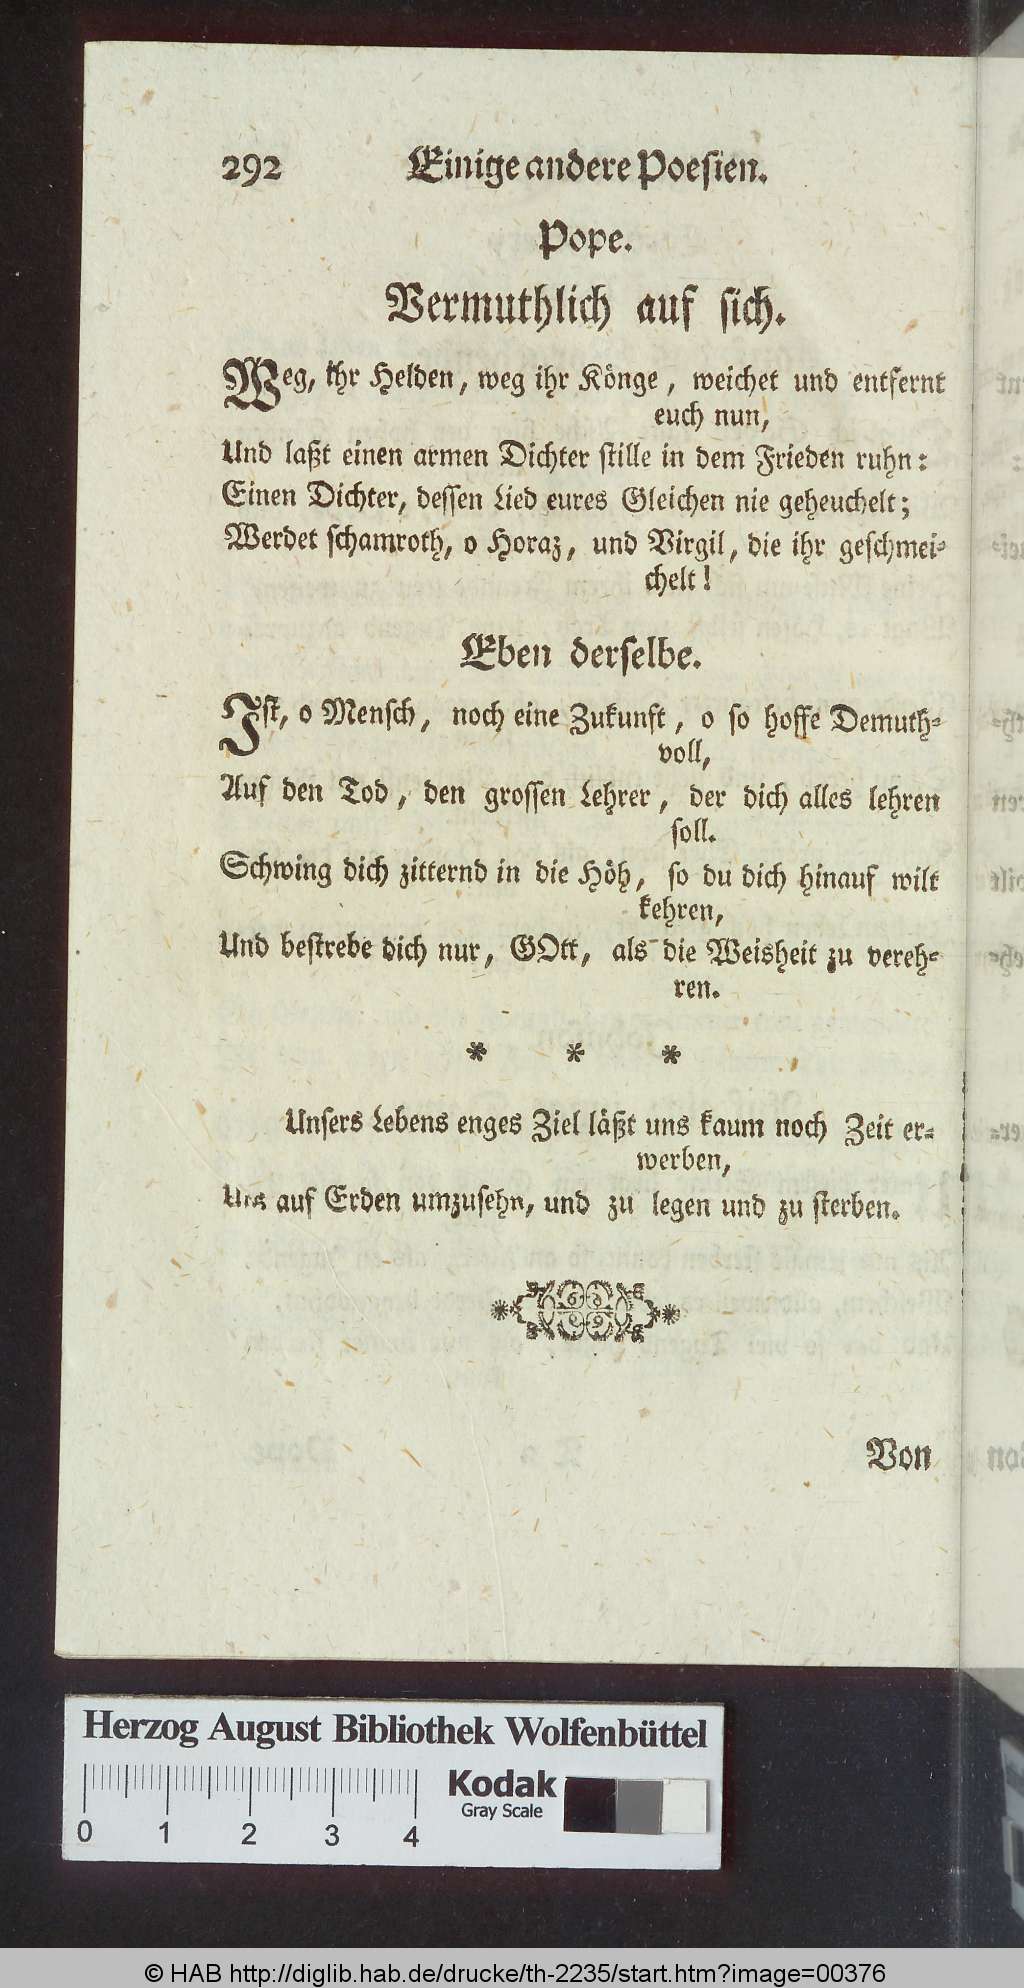 292 Einige andere Poesien.
Pope.
Vermuthlich auf sich.
Weg, ihr Helden, weg ihr Könge, weichet und entfernt
euch nun,
Und laßt einen armen Dichter stille in dem Frieden ruhn:
Einen Dichter, dessen Lied eures Gleichen nie geheuchelt;
Werdet schamroth, o Horaz, und Virgil, die ihr geschmei-
chelt!
Eben derselbe.
Ist, o Mensch, noch eine Zukunft, o so hoffe Demuth-
voll,
Auf den Tod, den grossen Lehrer, der dich alles lehren
soll.
Schwing dich zitternd in die Höh, so du dich hinauf wilt
kehren,
Und bestrebe dich nur, GOtt, als die Weisheit zu vereh-
ren.
* * *
Unsers Lebens enges Ziel läßt uns kaum noch Zeit er-
werben,
Uns auf Erden umzusehn, und zu legen und zu sterben.
Von
Herzog August Bibliothek Wolfenbüttel
Kodak
Gray Scale
0 1 2 3 4
© HAB http://diglib.hab.de/drucke/th-2235/start.htm?image=00376